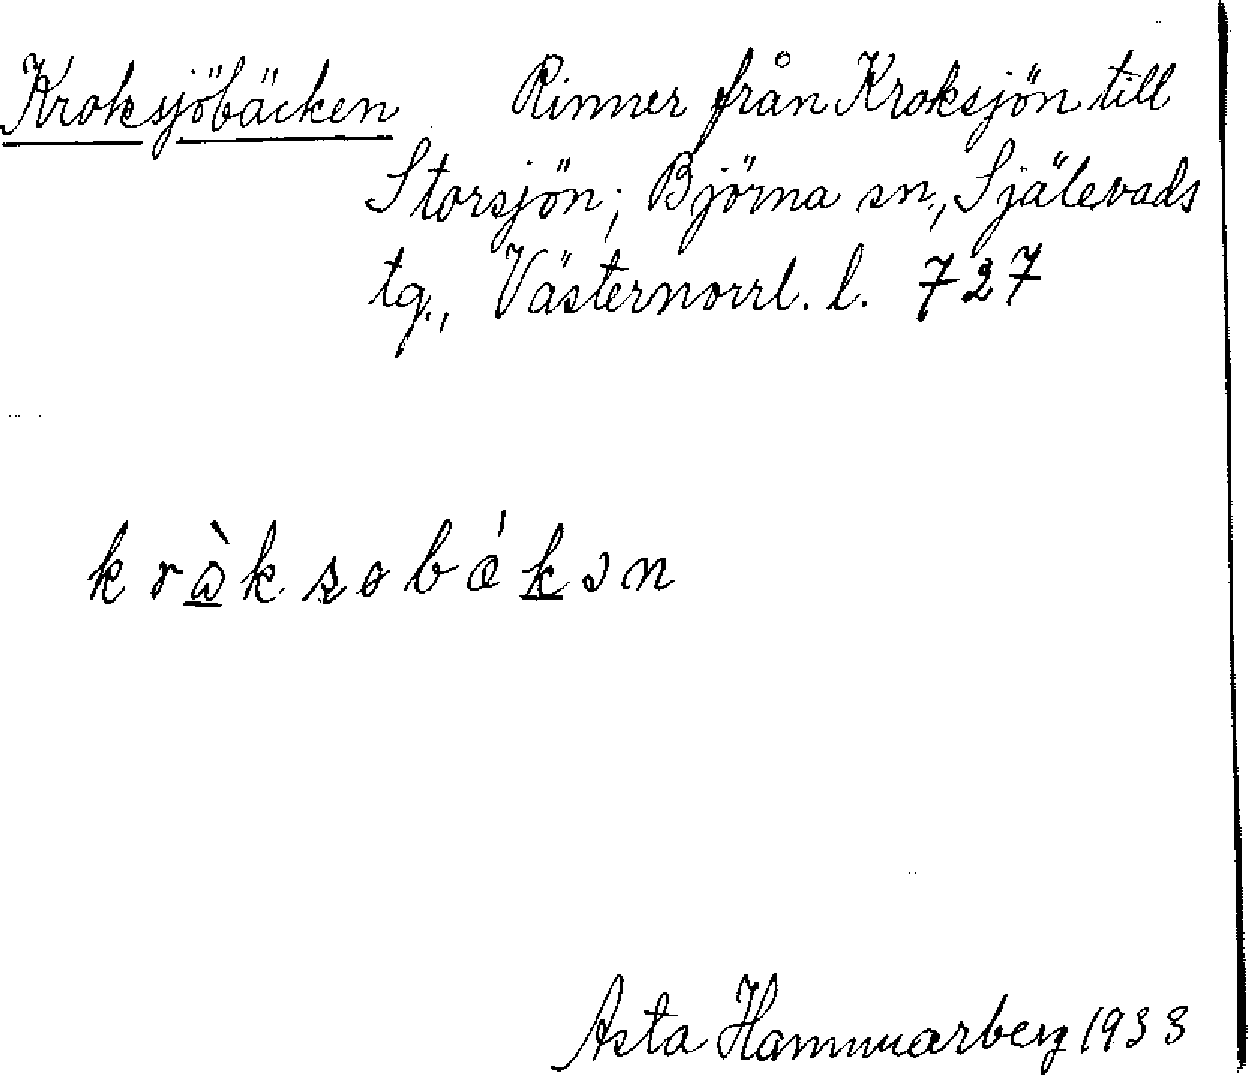 Kroksjöbäcken Rinner från Kroksjön till
Storsjön; Björna sn., Själevads
tg., Västernorrl. l. 727
Asta Hammarberg 1933